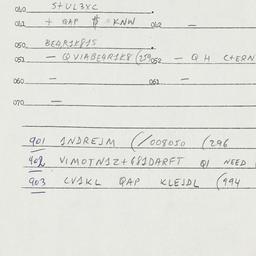 010 5+UL3XC
011 + QAP $ KNW 012 —
050 BE4R1K815
051 — QVIABEQR1K8 (250 052 — QH C+ERN
060 — 061 —
070 —
901 1NDREJM (/008050 (296
902 VIMOTN1Z+681DARFT Q1 NEED
903 CV1KL QAP KLEJDL (994